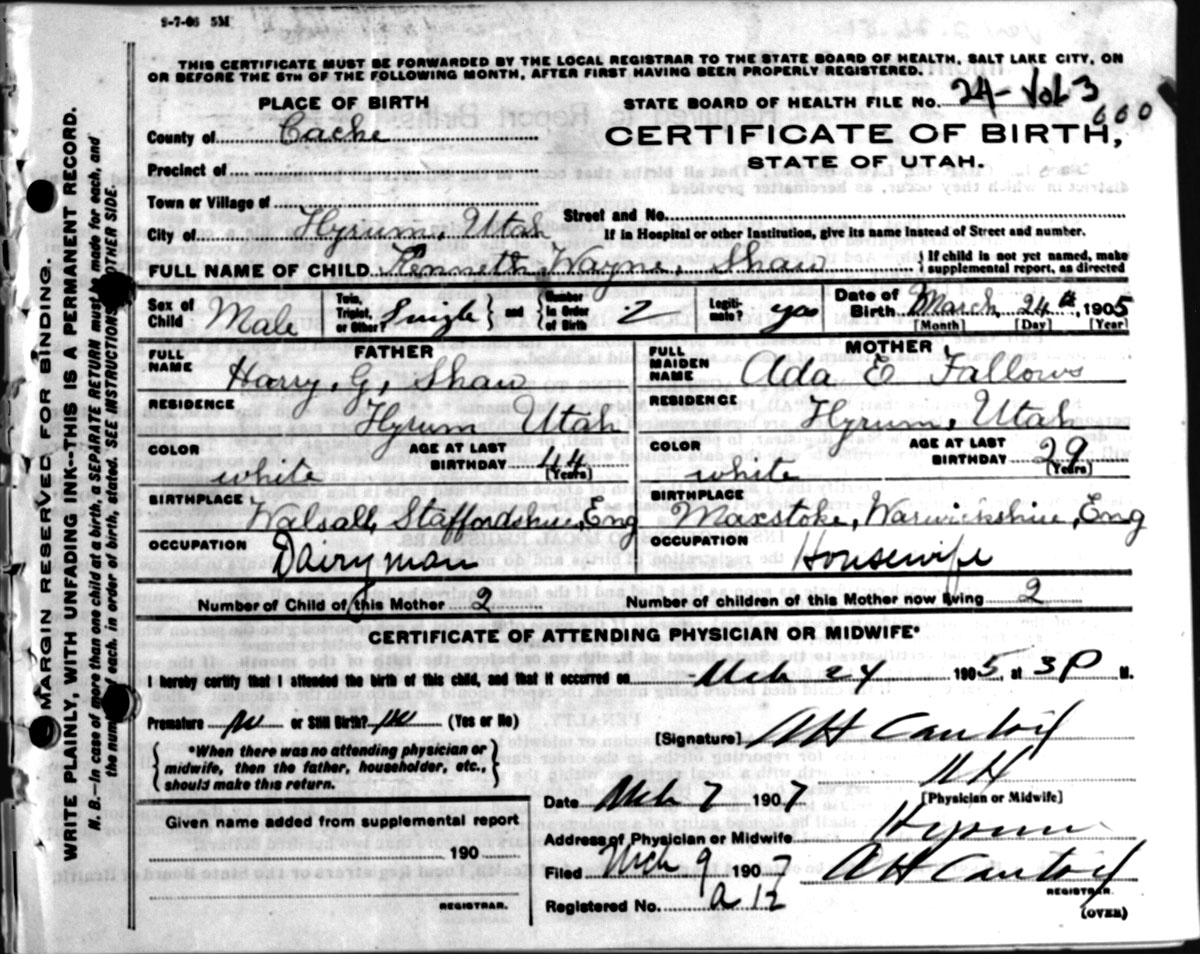 9-7-06 5M
THIS CERTIFICATE MUST BE FORWARDED BY THE LOCAL REGISTRAR TO THE STATE BOARD OF HEALTH, SALT LAKE CITY, ON
OR BEFORE THE 5TH OF THE FOLLOWING MONTH, AFTER FIRST HAVING BEEN PROPERLY REGISTERED.
PLACE OF BIRTH
County of Cache
Precinct of
Town or Village of
City of Hyrum, Utah
STATE BOARD OF HEALTH FILE NO. 24- Vol 3
660
CERTIFICATE OF BIRTH,
STATE OF UTAH.
Street and No.
If in Hospital or other Institution, give its name instead of Street and number.
FULL NAME OF CHILD Kenneth Wayne, Shaw
If child is not yet named, make
supplemental report, as directed
Sex of Child Male
Twin, Triplet, or Other? Single and Number in Order of Birth 2
Legitimate? yes
Date of Birth March, 24th, 1905
[Month] [Day] [Year]
FATHER
FULL NAME Harry, G, Shaw
RESIDENCE Hyrum Utah
COLOR white
AGE AT LAST BIRTHDAY 44
(Years)
BIRTHPLACE Walsall, Staffordshire, Eng
OCCUPATION Dairyman
MOTHER
FULL MAIDEN NAME Ada E Fallows
RESIDENCE Hyrum, Utah
COLOR white
AGE AT LAST BIRTHDAY 29
(Years)
BIRTHPLACE Maxstoke, Warwickshire, Eng
OCCUPATION Housewife
Number of Child of this Mother 2 Number of children of this Mother now living 2
CERTIFICATE OF ATTENDING PHYSICIAN OR MIDWIFE*
I hereby certify that I attended the birth of this child, and that it occurred on Mch 24 1905, at 3 P M.
Premature No or Still Birth? No (Yes or No)
*When there was no attending physician or
midwife, then the father, householder, etc.,
should make this return.
Given name added from supplemental report
190
REGISTRAR.
[Signature] AH
[Physician or Midwife]
Date Mch 7 1907
Address of Physician or Midwife Hyrum
Filed Mch 9 1907 AH
REGISTRAR.
Registered No. a 12
(OVER)
MARGIN RESERVED FOR BINDING.
WRITE PLAINLY, WITH UNFADING INK--THIS IS A PERMANENT RECORD.
N. B.--In case of more than one child at a birth, a SEPARATE RETURN must be made for each, and
the number of each, in order of birth, stated. SEE INSTRUCTIONS OTHER SIDE.